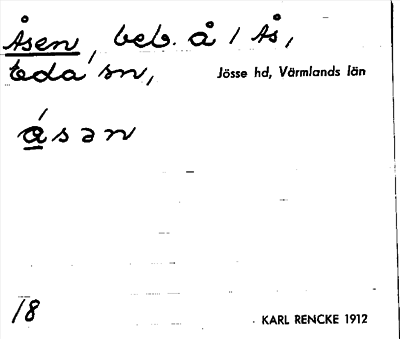 Åsen, beb. å / Ås,
Eda sn,
Jösse hd, Värmlands län
ǻsən
18
KARL RENCKE 1912